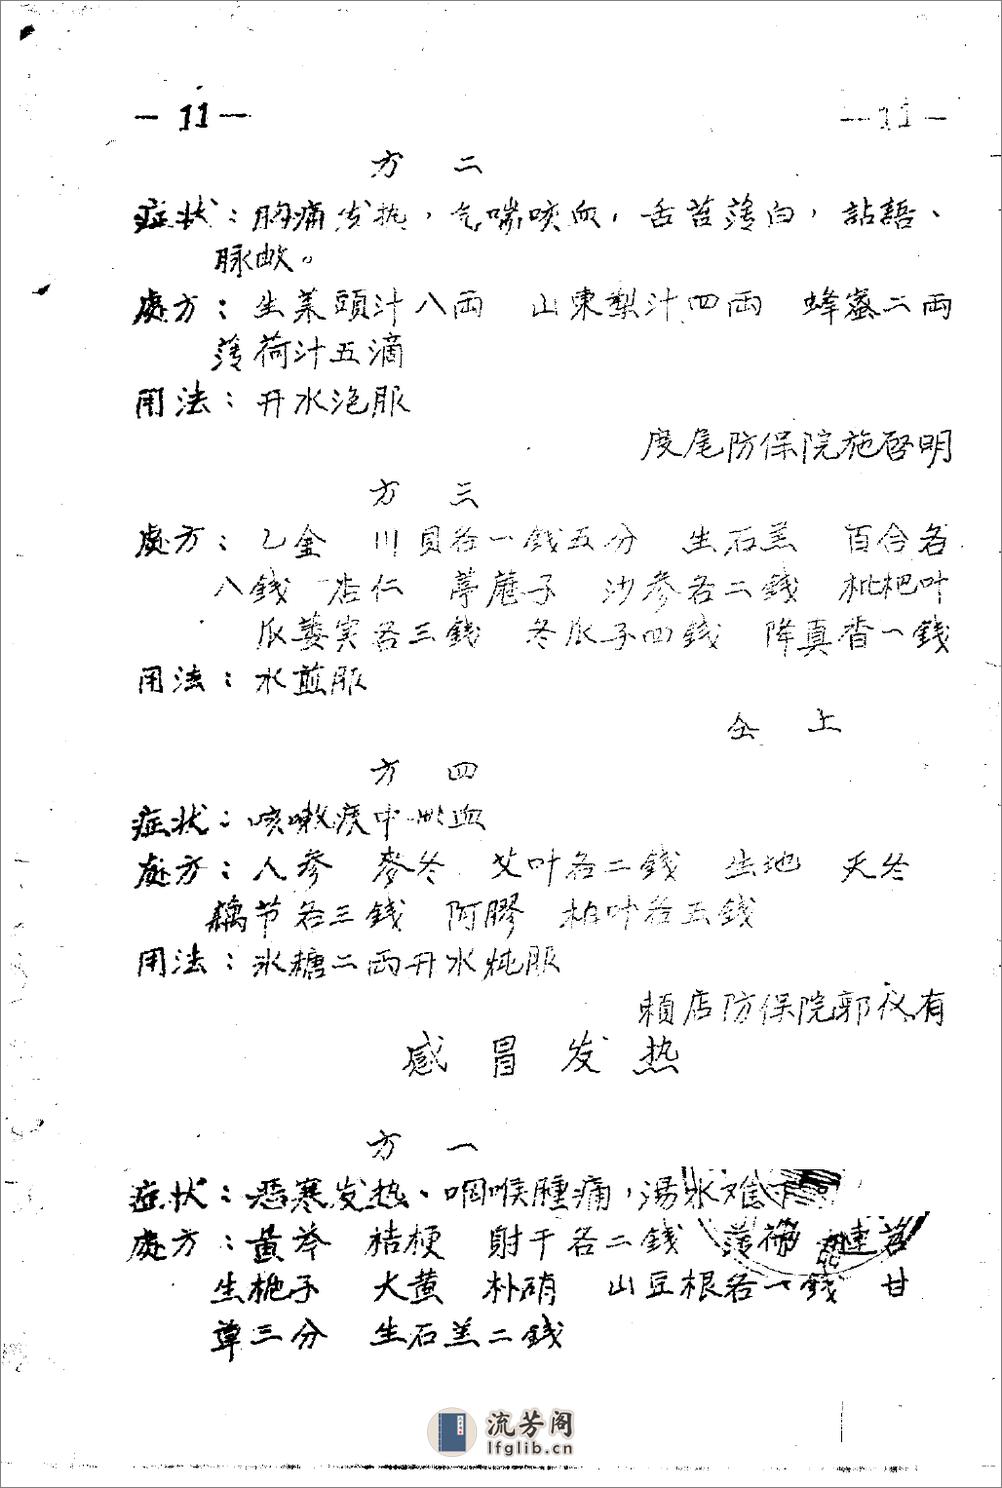 — 11 — — 11 —
方 二
症状：胸痛发热，气喘咳血，舌苔薄白，詀語、
脉
處方：生菜頭汁八両 山東梨汁四両 蜂蜜二両
薄荷汁五滴
用法：开水泡服
度尾防保院施啓明
方 三
處方：乙金 川貝各一錢五分 生石羔 百合各
八錢 杏仁 葶藶子 沙参各二錢 枇杷叶
瓜蒌実各三錢 冬瓜子四錢 降真香一錢
用法：水煎服
仝 上
方 四
症状：咳嗽痰中 血
處方：人参 麥冬 艾叶各二錢 生地 天冬
藕节各三錢 阿膠 柏叶各五錢
用法：冰糖二両开水炖服
頼店防保院郭 有
感 冒 发 热
方 一
症状：恶寒发热、咽喉腫痛，湯水难下
處方：黄芩 桔梗 射干各二錢 薄荷 連苕
生栀子 大黄 朴硝 山豆根各一錢 甘
草三分 生石羔二錢
流芳阁
lfglib.cn